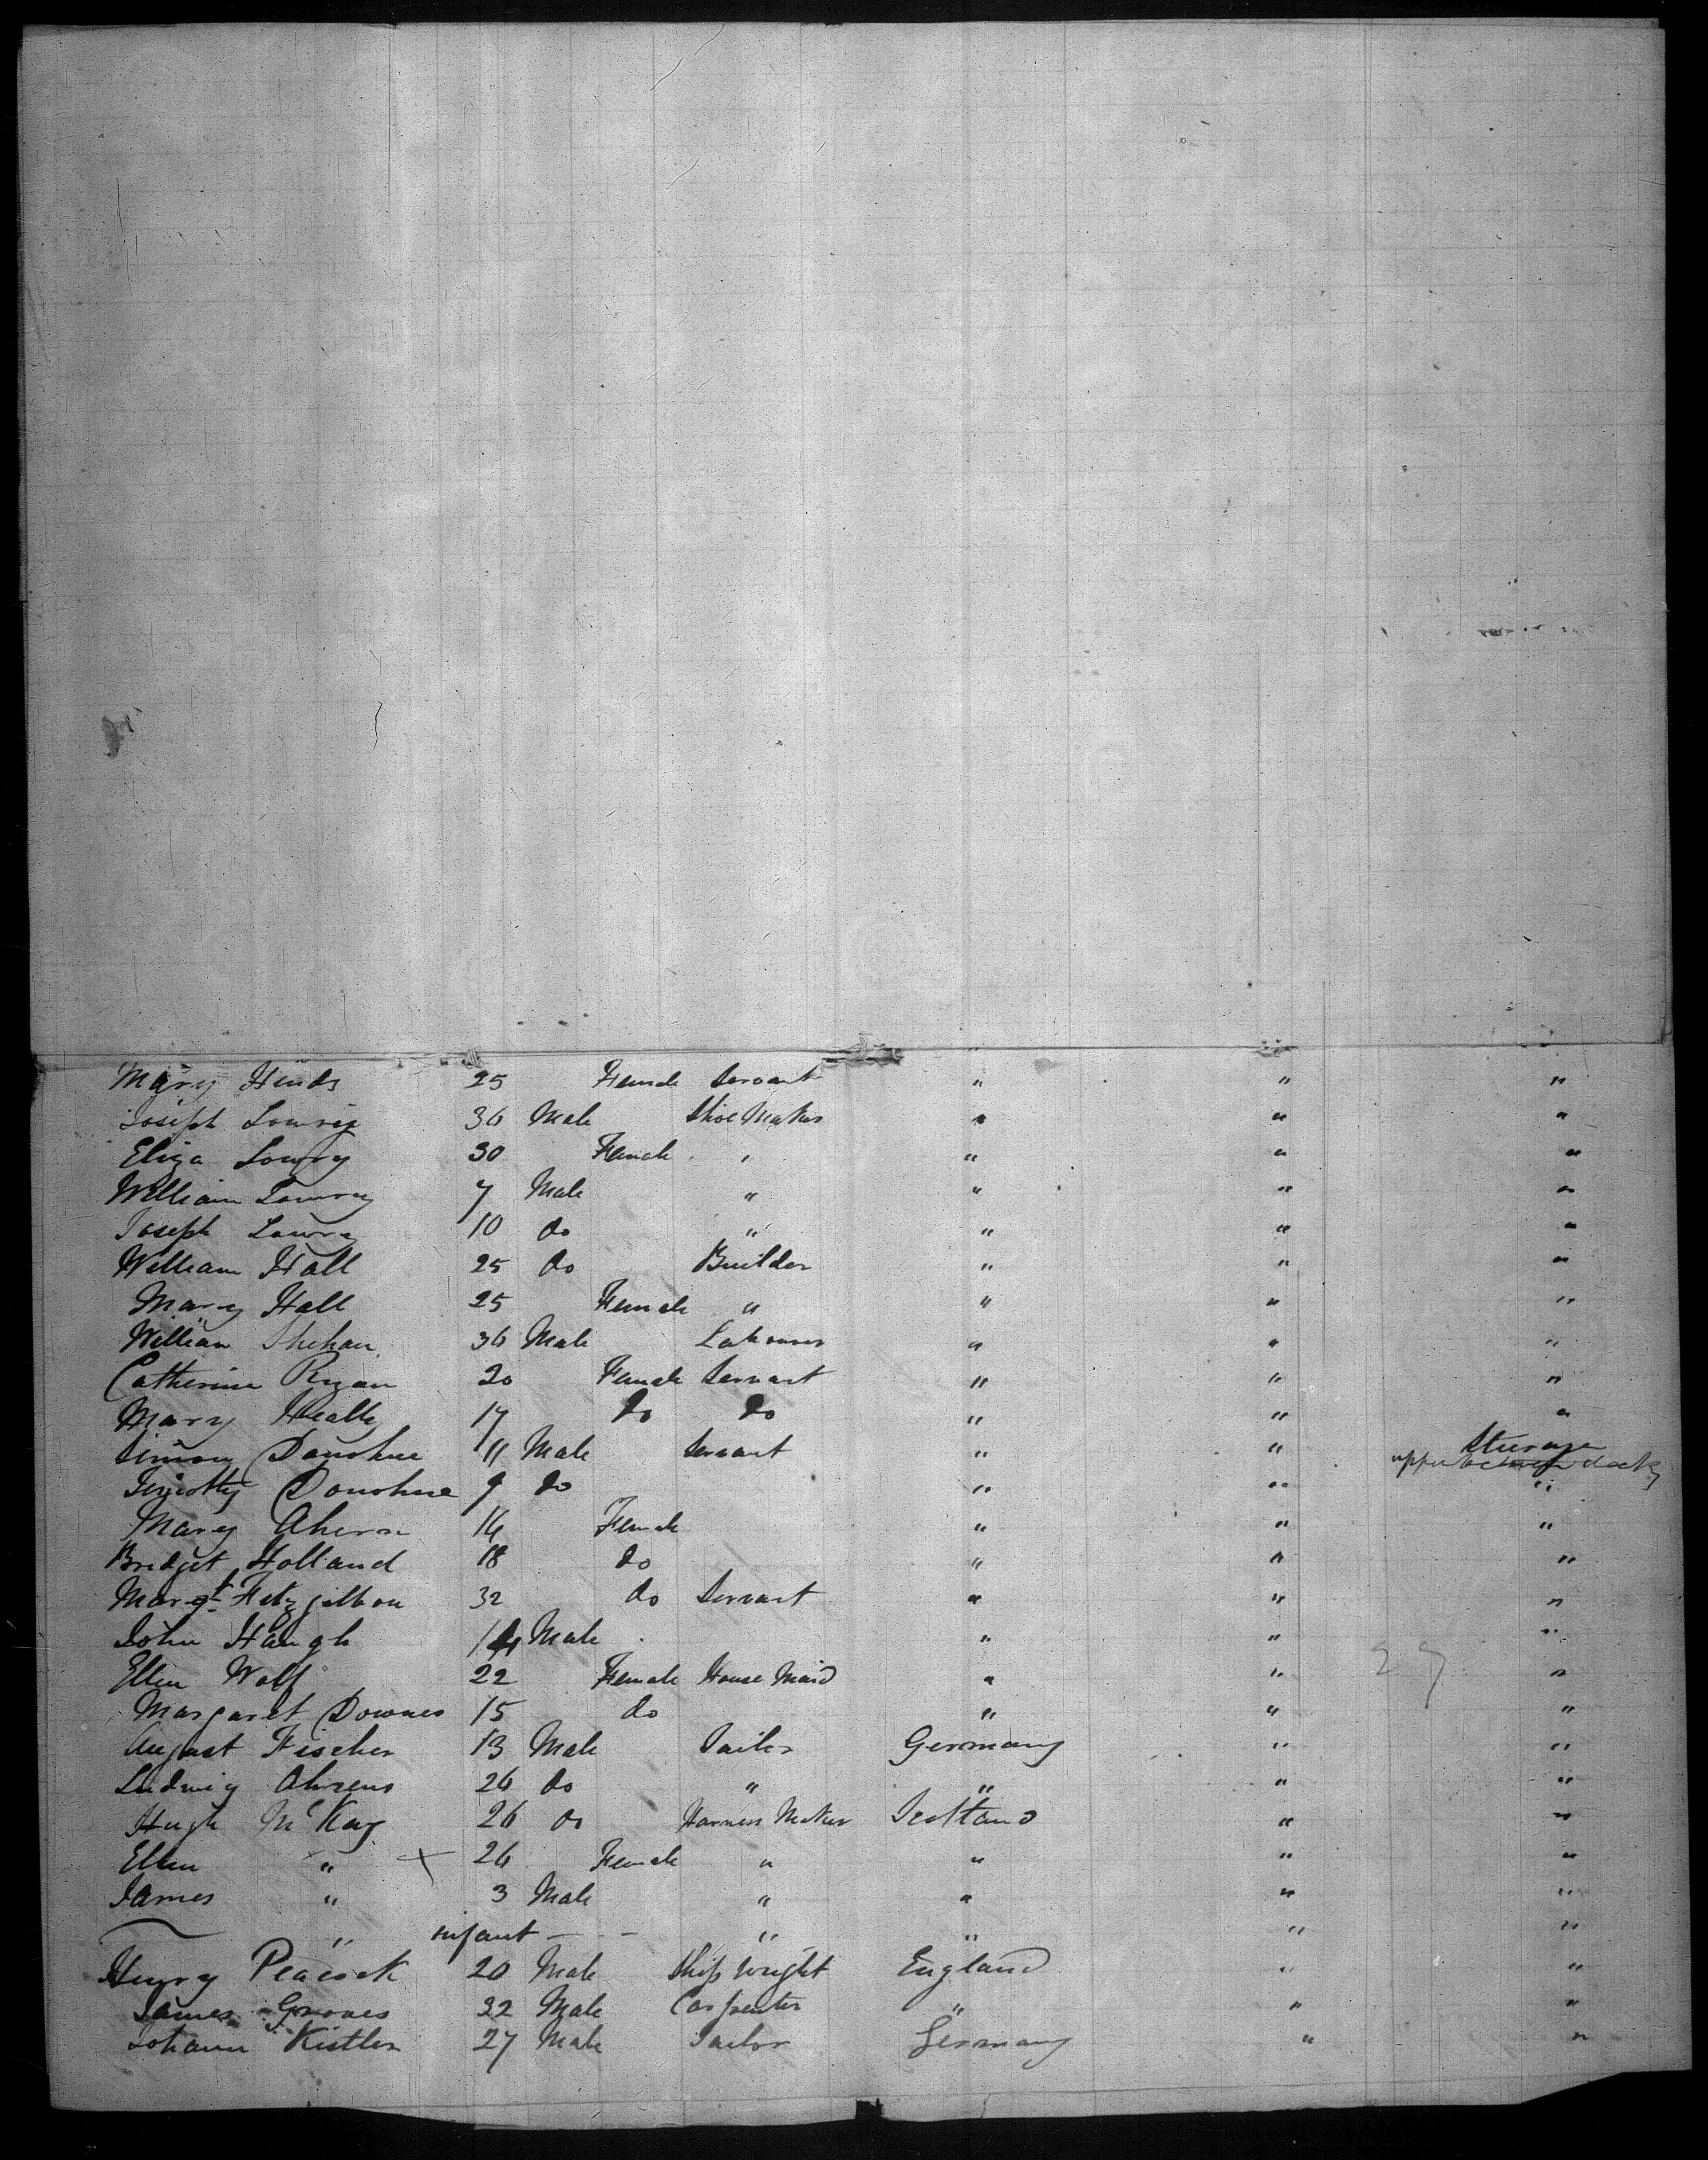 Mary Hinds 25 Female Servant " " "
Joseph Lowrey 36 Male Shoe Maker " " "
Eliza Lowry 30 Female " " " "
William Lowry 7 Male " " " "
Joseph Lowry 10 do " " " "
William Hall 25 do Builder " " "
Mary Hall 25 Female " " " "
William Shehan 36 Male Labourer " " "
Catherine Ryan 20 Female Servant " " "
Mary Healy 17 do do " " "
Simon Donohue 11 Male Servant " " Steerage
upper between decks
Timothy Donohue 9 do " " "
Mary Ahern 16 Female " " "
Bridget Holland 18 do " " "
Margt Fitzgibbon 32 do Servant " " "
John Haugh 14 Male " " "
Ellen Wolf 22 Female House Maid " " " 27
Margaret Downes 15 do " " "
August Fischer 13 Male Tailor Germany " "
Ludwig Ahrens 26 do " " " "
Hugh McKay 26 do Harness Maker Scotland " "
Ellen " + 26 Female " " " "
James " 3 Male " " " "
" infant " " " "
Henry Peacock 20 Male Ship Wright England " "
James Groves 22 Male Carpenter " " "
Johann Kistler 27 Male Tailor Germany " "